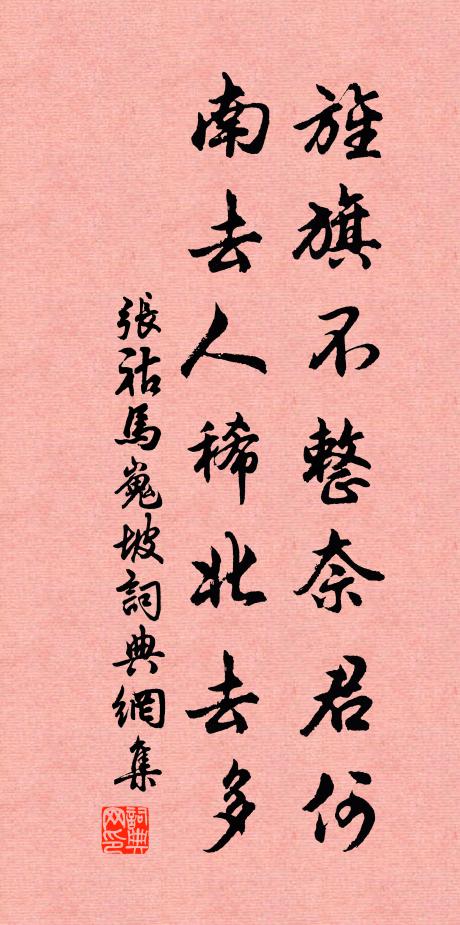 旌旗不整奈君何
南去人稀北去多
張祜馬嵬坡詞典網集
詞典网印